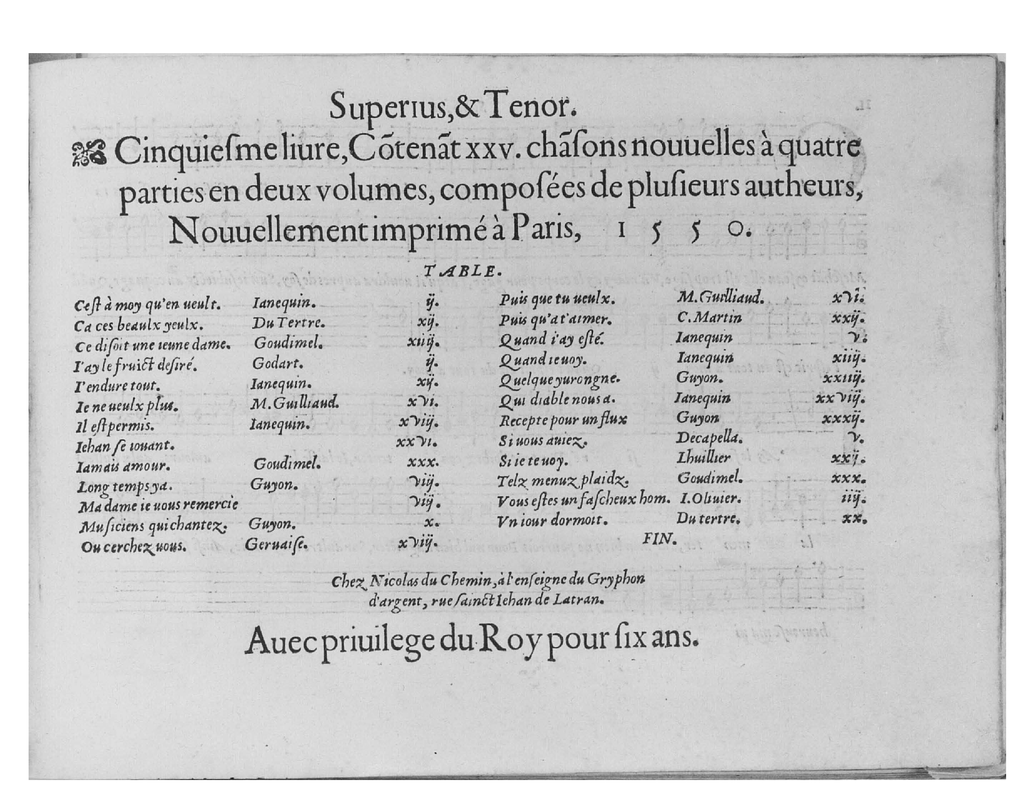 Superius, & Tenor.
Cinquiesme liure, Cõtenãt xxv. chãsons nouuelles à quatre
parties en deux volumes, composées de plusieurs autheurs,
Nouuellement imprimé à Paris, 1550.
TABLE.
Cest à moy qu'en ueult. Ianequin. ij.
Ca ces beaulx yeulx. Du Tertre. xij.
Ce disoit une ieune dame. Goudimel. xiij.
I'ay le fruict desiré. Godart. ij.
I'endure tout. Ianequin. xij.
Ie ne ueulx plus. M. Guilliaud. xvi.
Il est permis. Ianequin. xviij.
Iehan se iouant. xxvi.
Iamais amour. Goudimel. xxx.
Long temps ya. Guyon. viij.
Ma dame ie uous remercie viij.
Musiciens qui chantez. Guyon. x.
Ou cerchez uous. Geruaise. xviij.
Puis que tu ueulx. M. Guilliaud. xvi.
Puis qu'at'aimer. C. Martin xxij.
Quand i'ay esté. Ianequin v.
Quand ie uoy. Ianequin xiiij.
Quelque yurongne. Guyon. xxiiij.
Qui diable nous a. Ianequin xxviij.
Recepte pour un flux Guyon xxxij.
Si uous auiez. Decapella. v.
Si ie te uoy. Lhuillier xxij.
Telz menuz plaidz. Goudimel. xxx.
Vous estes un fascheux hom. I. Oliuier. iiij.
Vn iour dormoit. Du tertre. xx.
FIN.
Chez Nicolas du Chemin, à l'enseigne du Gryphon
d'argent, rue sainct Iehan de Latran.
Auec priuilege du Roy pour six ans.